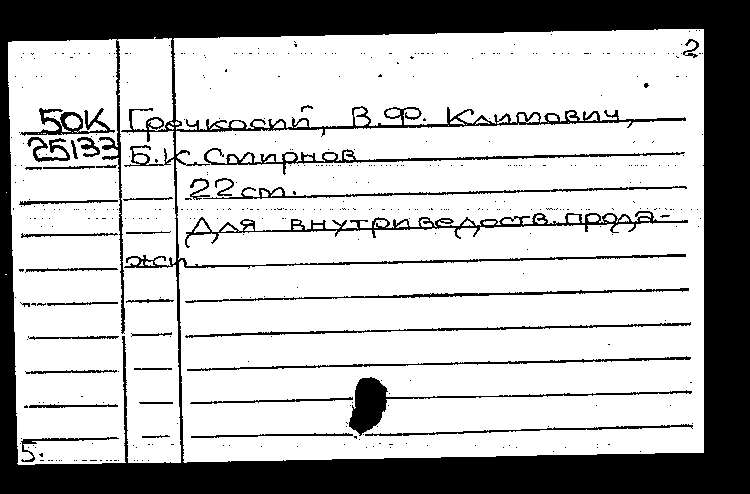 2
50К Гречкосий, В.Ф. Климович,
25133 Б.К. Смирнов
22 cm.
Для внутриведоств. прода-
жи.
5.